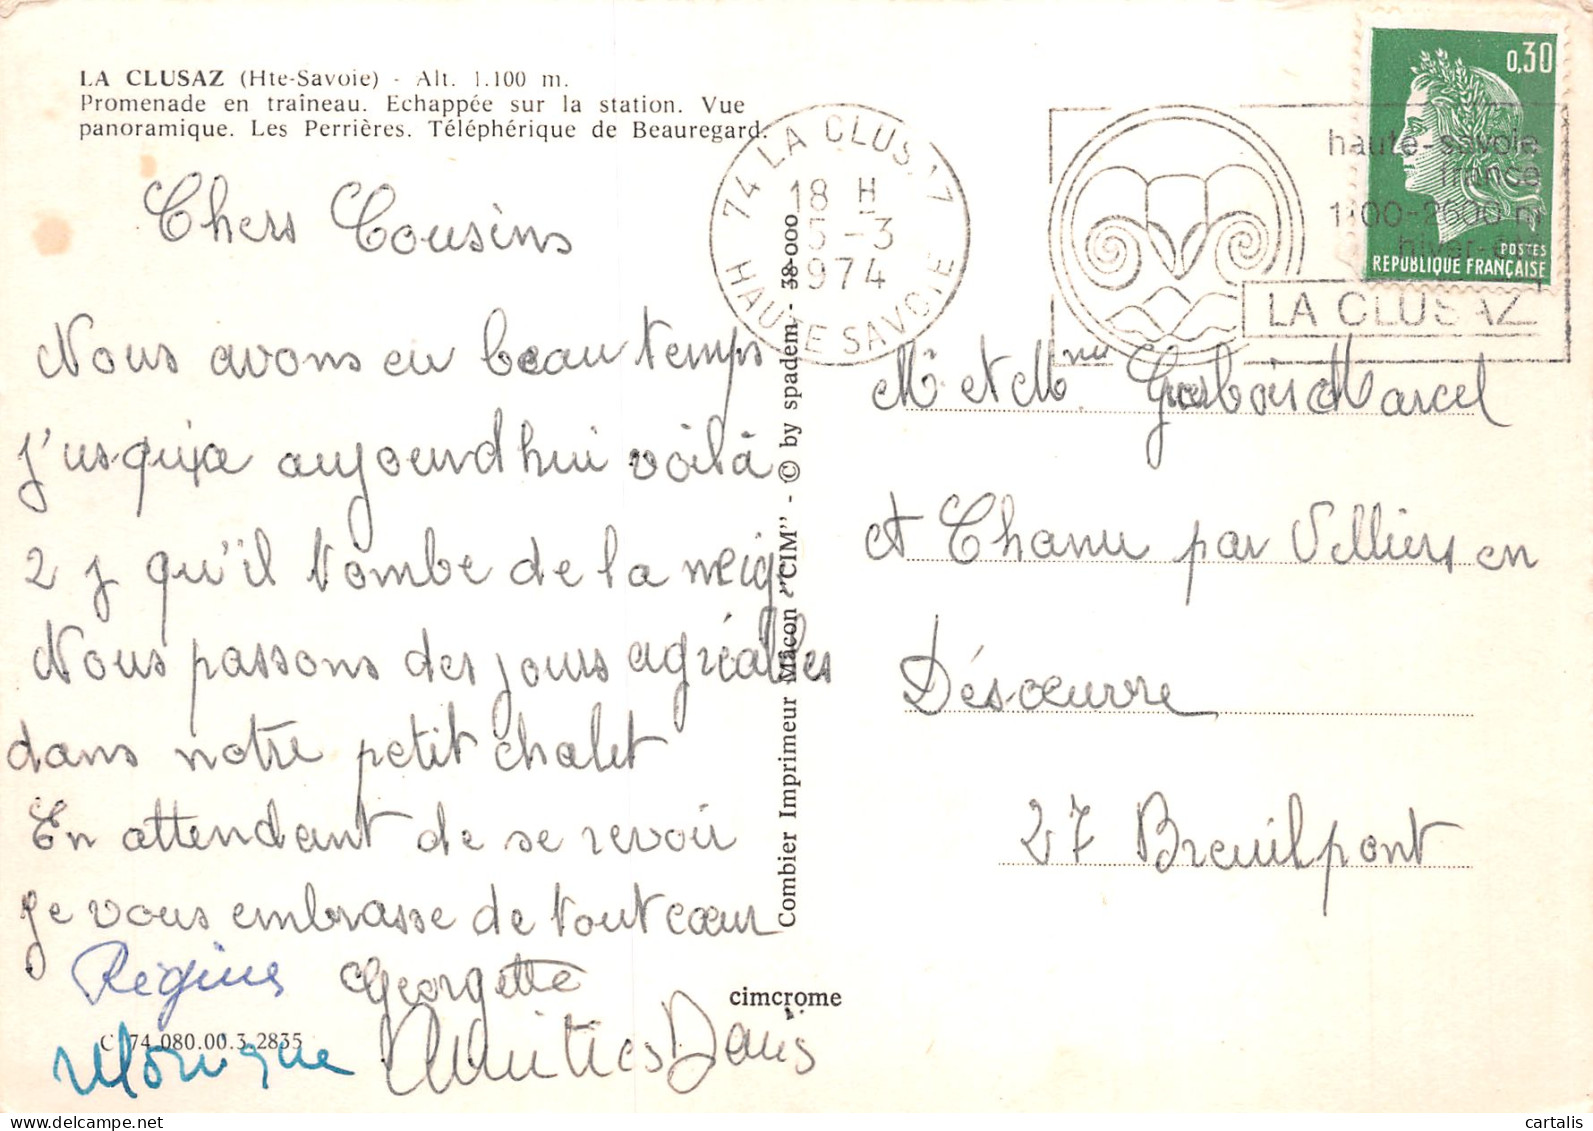 LA CLUSAZ (Hte-Savoie) - Alt. 1.100 m.
Promenade en traîneau. Echappée sur la station. Vue
panoramique. Les Perrières. Téléphérique de Beauregard.
Chers Cousins
Nous avons eu beau temps
j'usqu'a aujourd'hui voilà
2 j qu'il tombe de la neig
Nous passons des jours agréables
dans notre petit chalet
En attendant de se revoir
je vous embrasse de tout cœur
Régine Georgette
Monique Amitiés
C 74 080.00.3.2835
cimcrome
Combier Imprimeur Mâcon "CIM" - © by spadem - 38-000
74 LA CLUS
18 H
5-3
1974
HAUTE SAVOIE
haute-savoie
france
1100-2600 m
hiver-été
LA CLUSAZ
0,30
POSTES
REPUBLIQUE FRANÇAISE
Mr et Mme Marcel
et Chanu par Villiers en
Désœuvre
27 Breuilpont
cartalis | cartes-postales.delcampe.net